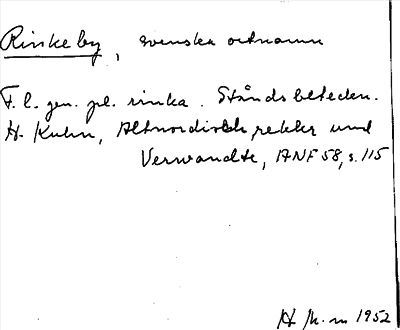 Rinkeby, svenska ortnamn
F.l. gen. pl. rinka. Ståndsbeteckn.
H. Kuhn, Altnordisch rekkr und
Verwandte, ANF 58, s. 115
H 1952